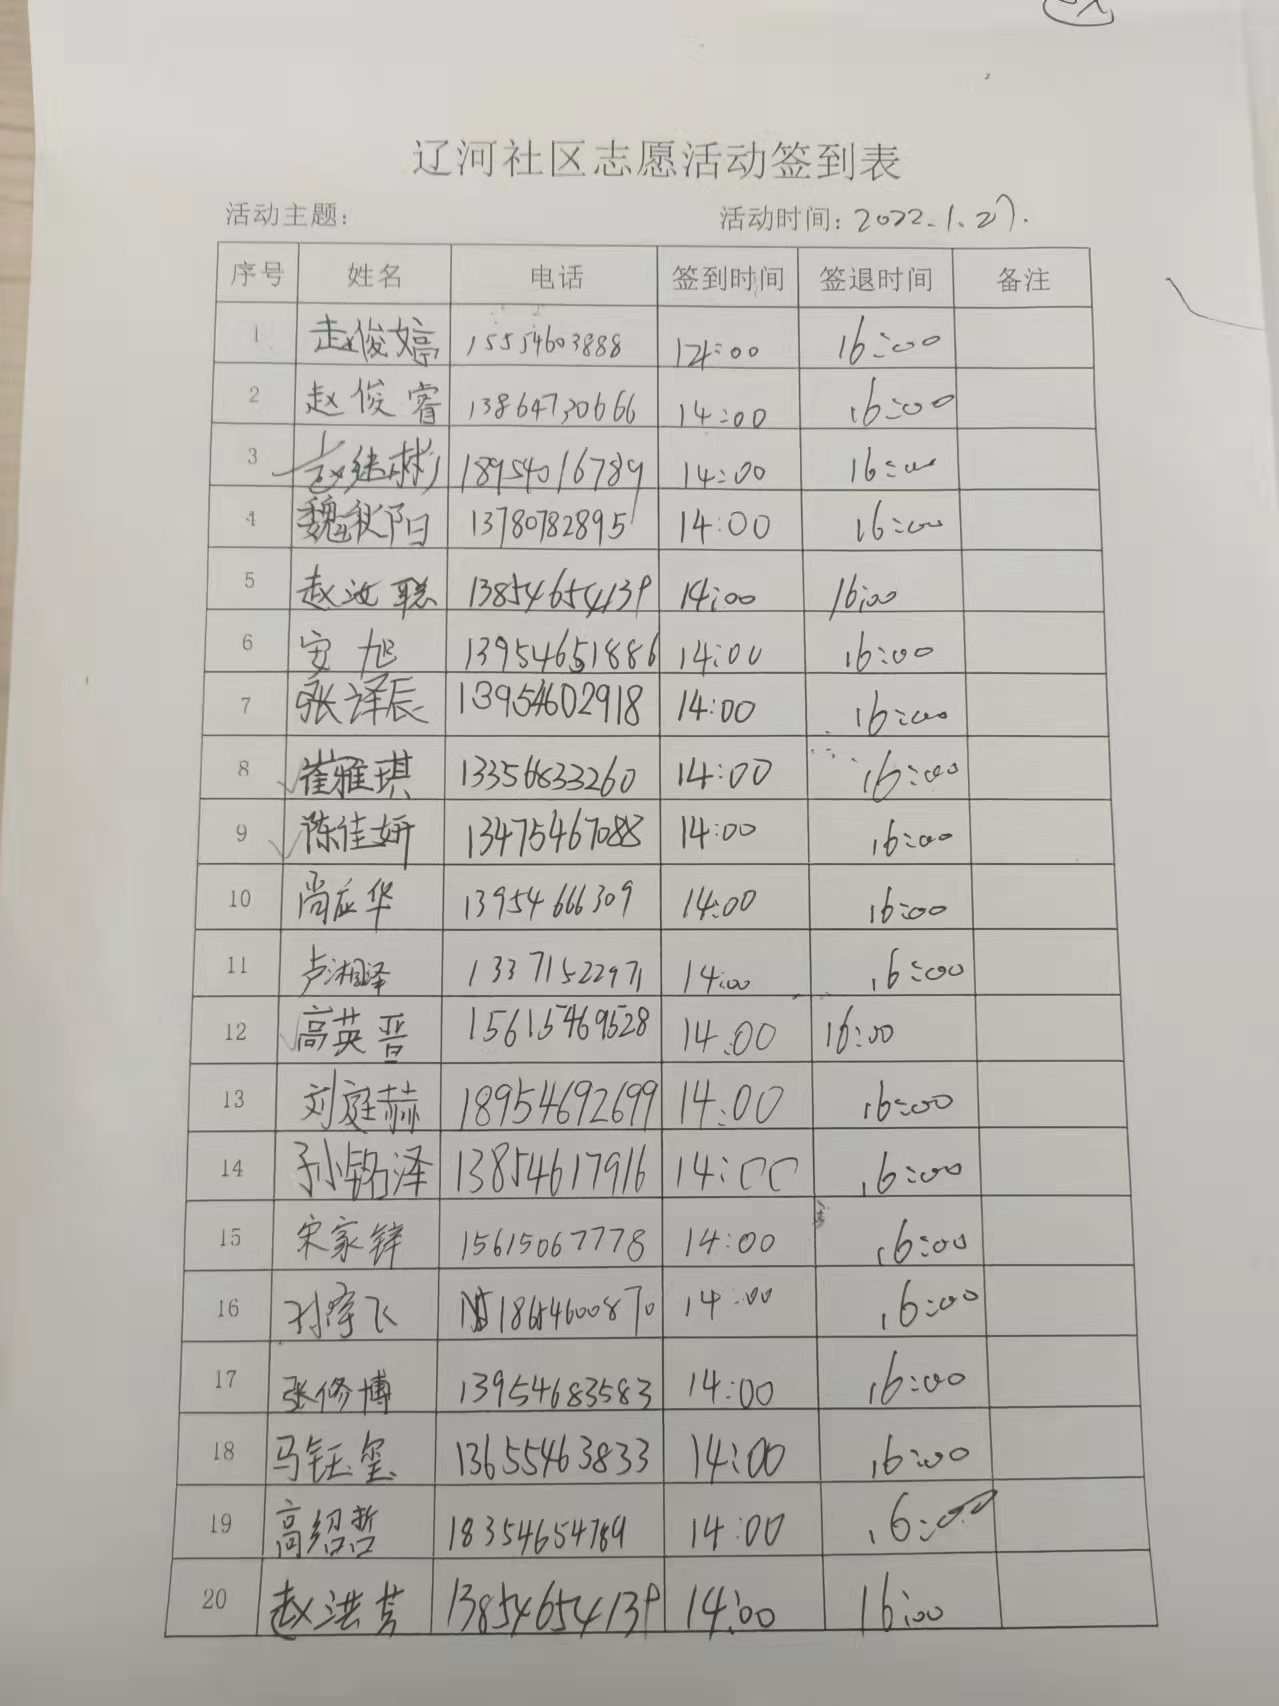 辽河社区志愿活动签到表
活动主题: 活动时间: 2022.1.27.
序号 姓名 电话 签到时间 签退时间 备注
1 赵俊婷 15554603888 14:00 16:00
2 赵俊睿 13864730666 14:00 16:00
3 赵继彬 18954016789 14:00 16:00
4 魏秋阳 13780782895 14:00 16:00
5 赵汝聪 13854654139 14:00 16:00
6 安旭 13954651886 14:00 16:00
7 张译辰 13954602918 14:00 16:00
8 崔雅琪 13356833260 14:00 16:00
9 陈佳妍 13475467088 14:00 16:00
10 尚应华 13954666309 14:00 16:00
11 卢湘泽 13371522971 14:00 16:00
12 高英晋 15615469528 14:00 16:00
13 刘庭赫 18954692699 14:00 16:00
14 孙铭泽 13854617916 14:00 16:00
15 宋家锌 15615067778 14:00 16:00
16 飞 18654600870 14:00 16:00
17 张修博 13954683583 14:00 16:00
18 马钰玺 13655463833 14:00 16:00
19 高绍哲 18354654789 14:00 16:00
20 赵洪芸 13854654139 14:00 16:00